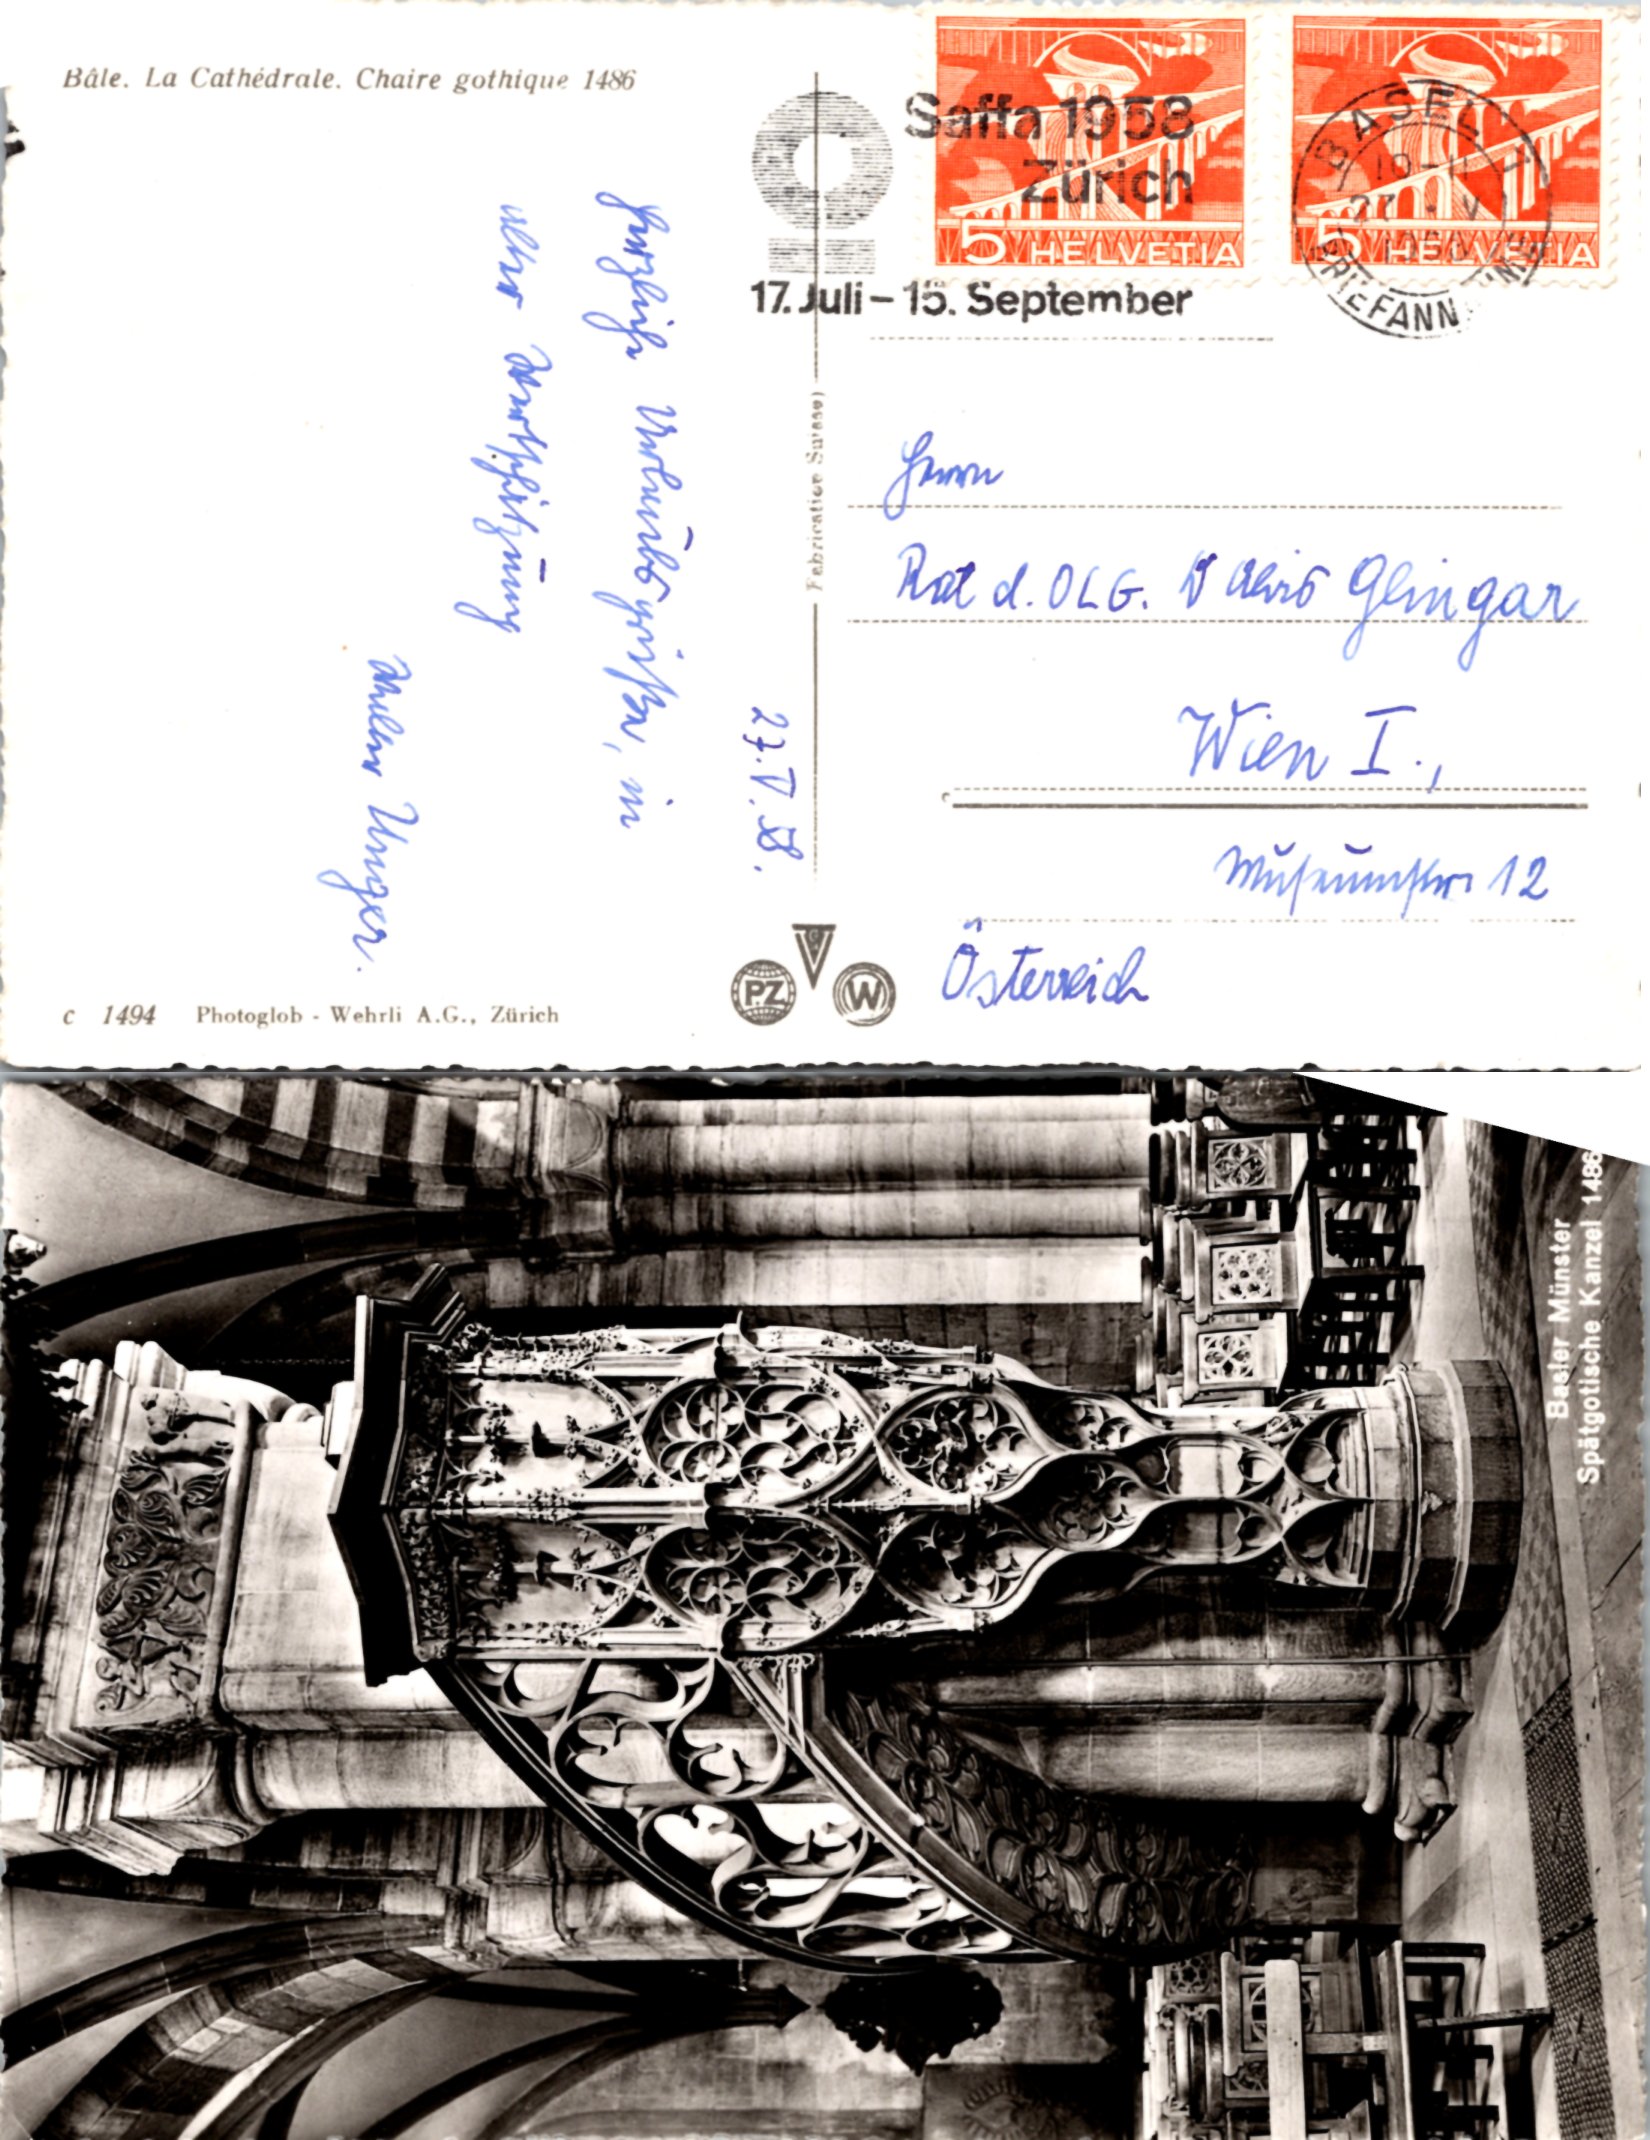 Bâle. La Cathédrale. Chaire gothique 1486
Saffa 1958
Zürich
17. Juli – 15. September
5 HELVETIA
5 HELVETIA
BASEL 1
27. V.
BRIEFANNAHME
Fabrication Suisse
27. V. 58.
Herzliche Urlaubsgrüße, in
alter Wertschätzung
Unger.
Herrn
Rat d. OLG. Dr Alois Glingar
Wien I.,
Museumstr. 12
Österreich
c 1494 Photoglob - Wehrli A.G., Zürich
PZ
V
W
Basler Münster
Spätgotische Kanzel 1486